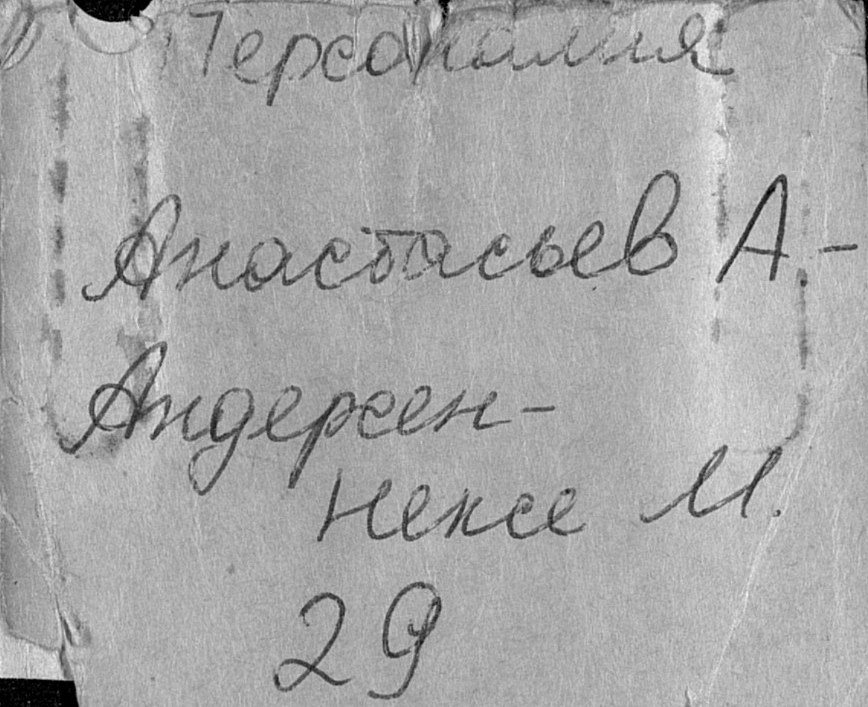 Персоналия
Анастасьев А. -
Андерсен-
Нексе М.
29